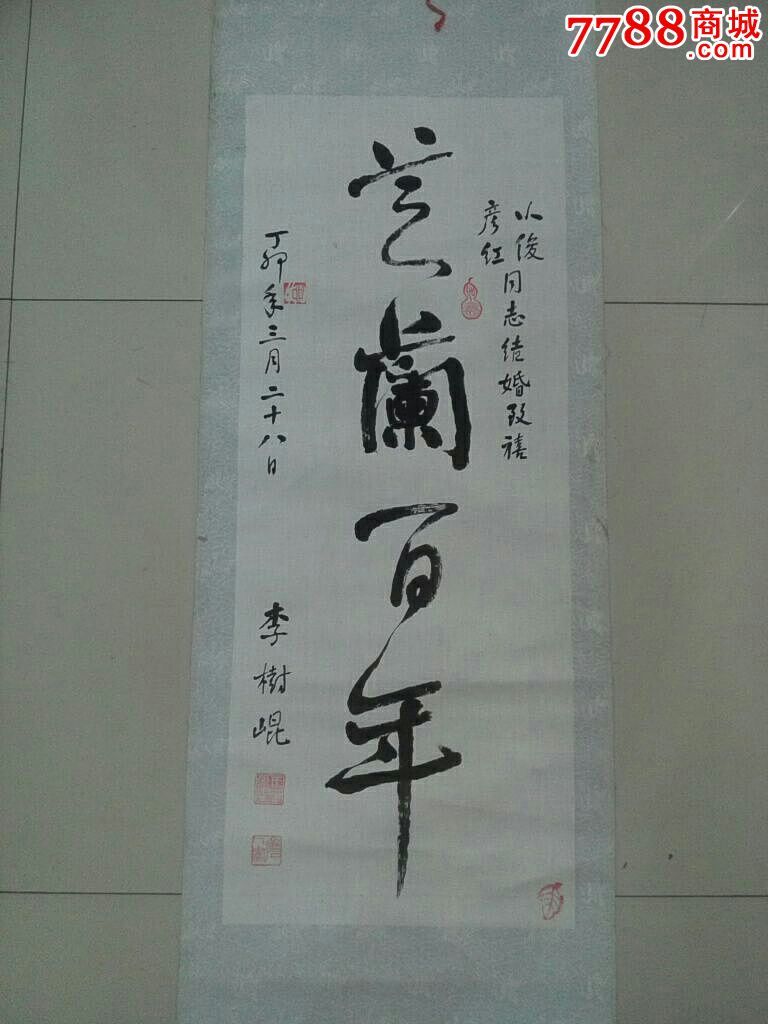 7788商城
.com
小俊
彦红
同志结婚致禧
芝蘭百年
丁卯年三月二十八日
李樹崐